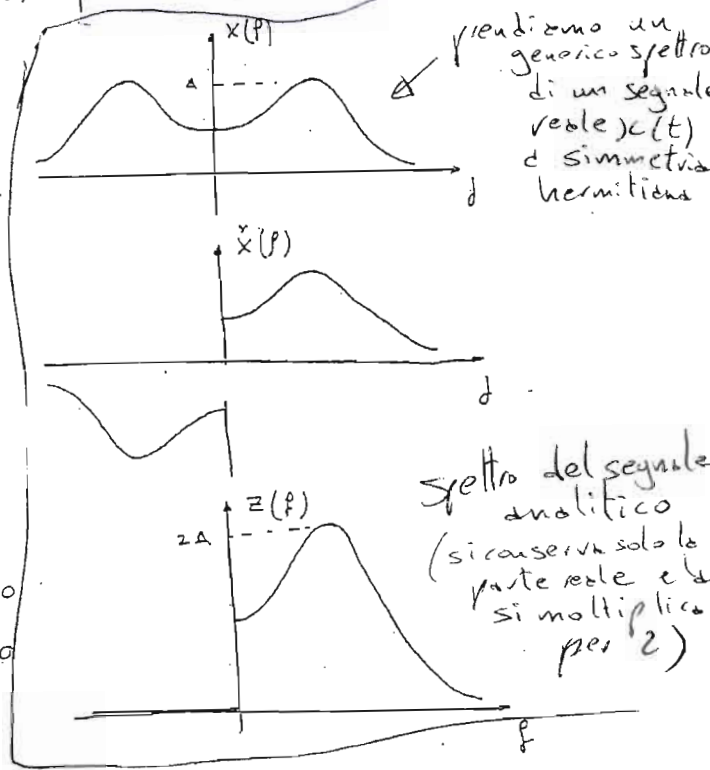 X(f)
A
prendiamo un
generico spettro
di un segnale
reale x(t)
a simmetria
hermitiana
f
X̌(f)
f
Z(f)
2A
spettro del segnale
analitico
(si conserva solo la
parte reale e la
si moltiplica
per 2)
f